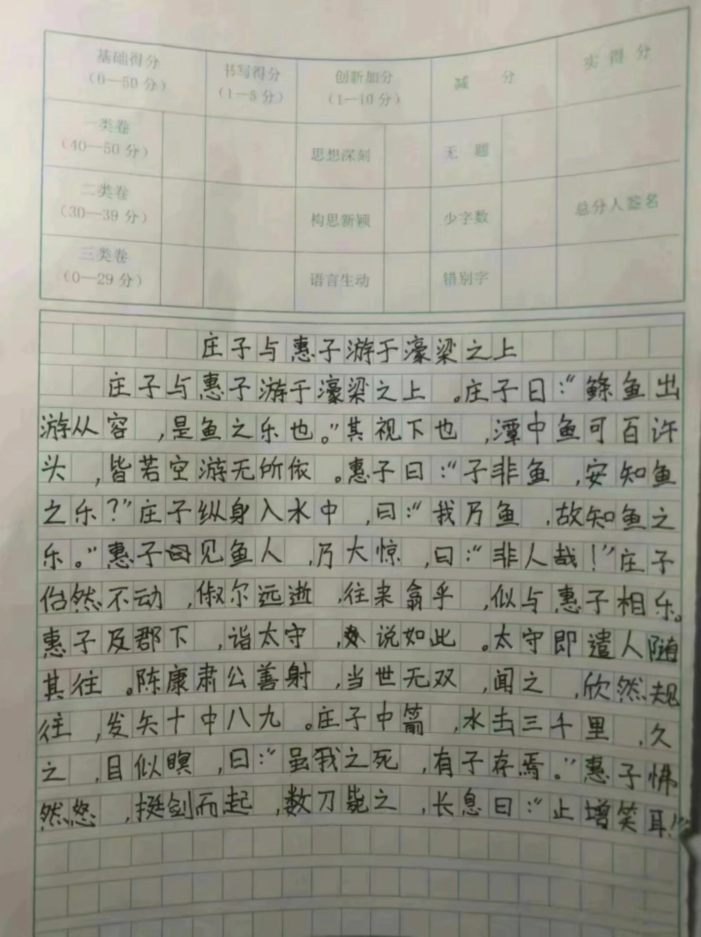 基础得分
(0—50分)
书写得分
(1—5分)
创新加分
(1—10分)
减 分
实 得 分
一类卷
(40—50分)
思想深刻
无 题
二类卷
(30—39分)
构思新颖
少字数
总分人签名
三类卷
(0—29分)
语言生动
错别字
庄子与惠子游于濠梁之上
庄子与惠子游于濠梁之上。庄子曰:“鲦鱼出
游从容,是鱼之乐也。”其视下也,潭中鱼可百许
头,皆若空游无所依。惠子曰:“子非鱼,安知鱼
之乐?”庄子纵身入水中,曰:“我乃鱼,故知鱼之
乐。”惠子见鱼人,乃大惊,曰:“非人哉!”庄子
佁然不动,俶尔远逝,往来翕乎,似与惠子相乐。
惠子及郡下,诣太守,说如此。太守即遣人随
其往。陈康肃公善射,当世无双,闻之,欣然规
往,发矢十中八九。庄子中箭,水击三千里,久
之,目似瞑,曰:“虽我之死,有子存焉。”惠子怫
然怒,挺剑而起,数刀毙之,长息曰:“止增笑耳!”